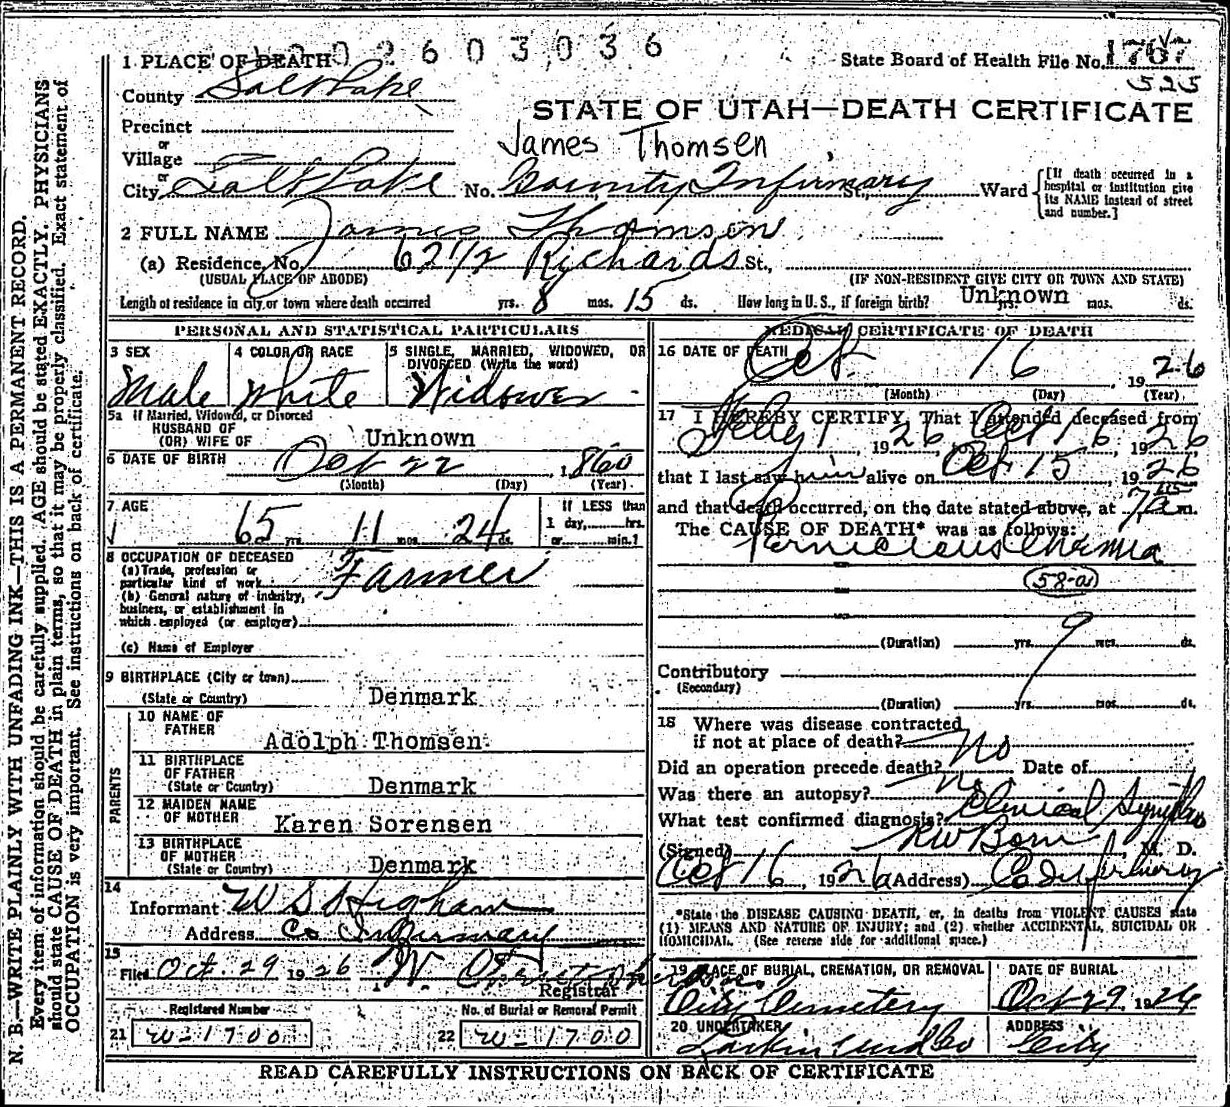 1 PLACE OF DEATH 2 6 0 3 0 3 6
State Board of Health File No. 1767
525
County Salt Lake
STATE OF UTAH—DEATH CERTIFICATE
Precinct
or
James Thomsen
Village
or
City Salt Lake No. County Infirmary St., Ward
[If death occurred in a hospital or institution give its NAME instead of street and number.]
2 FULL NAME James Thomsen
(a) Residence, No. 62 1/2 Richards St.,
(USUAL PLACE OF ABODE) (IF NON-RESIDENT GIVE CITY OR TOWN AND STATE)
Length of residence in city or town where death occurred yrs. 8 mos. 15 ds. How long in U.S., if foreign birth? Unknown yrs. mos. ds.
PERSONAL AND STATISTICAL PARTICULARS
3 SEX Male
4 COLOR OR RACE White
5 SINGLE, MARRIED, WIDOWED, OR DIVORCED (Write the word) Widower
5a If Married, Widowed, or Divorced
HUSBAND OF
(OR) WIFE OF Unknown
6 DATE OF BIRTH Oct 22, 1860
(Month) (Day) (Year)
7 AGE 65 yrs 11 mos. 24 ds.
If LESS than
1 day, hrs.
or min.?
8 OCCUPATION OF DECEASED
(a) Trade, profession or
particular kind of work Farmer
(b) General nature of industry,
business, or establishment in
which employed (or employer)
(c) Name of Employer
9 BIRTHPLACE (City or town)
(State or Country) Denmark
PARENTS
10 NAME OF
FATHER Adolph Thomsen
11 BIRTHPLACE
OF FATHER
(State or Country) Denmark
12 MAIDEN NAME
OF MOTHER Karen Sorensen
13 BIRTHPLACE
OF MOTHER
(State or Country) Denmark
14
Informant W S Higham
Address Co Infirmary
15
Filed Oct. 29 1926 W.
Registrar
Registered Number No. of Burial or Removal Permit
21 W-1700 22 W-1700
MEDICAL CERTIFICATE OF DEATH
16 DATE OF DEATH Oct. 16, 1926
(Month) (Day) (Year)
17 I HEREBY CERTIFY, That I attended deceased from
Feby 1, 1926, Oct 16, 1926
that I last saw him alive on Oct 15 1926
and that death occurred, on the date stated above, at 7 15 a m.
The CAUSE OF DEATH* was as follows:
Pernicious Anemia
58-a
(Duration) yrs. 9 mos. ds.
Contributory
(Secondary)
(Duration) yrs. mos. ds.
18 Where was disease contracted
if not at place of death?
Did an operation precede death? No Date of
Was there an autopsy? No
What test confirmed diagnosis? Clinical
(Signed) M. D.
Oct 16, 1926 (Address) Co Infirmary
*State the DISEASE CAUSING DEATH, or, in deaths from VIOLENT CAUSES state
(1) MEANS AND NATURE OF INJURY; and (2) whether ACCIDENTAL, SUICIDAL OR
HOMICIDAL. (See reverse side for additional space.)
19 PLACE OF BURIAL, CREMATION, OR REMOVAL
City Cemetery
DATE OF BURIAL
Oct 29, 1926
20 UNDERTAKER
Larkin Und Co
ADDRESS
City
READ CAREFULLY INSTRUCTIONS ON BACK OF CERTIFICATE
N. B.—WRITE PLAINLY WITH UNFADING INK—THIS IS A PERMANENT RECORD.
Every item of information should be carefully supplied. AGE should be stated EXACTLY. PHYSICIANS
should state CAUSE OF DEATH in plain terms, so that it may be properly classified. Exact statement of
OCCUPATION is very important. See instructions on back of certificate.